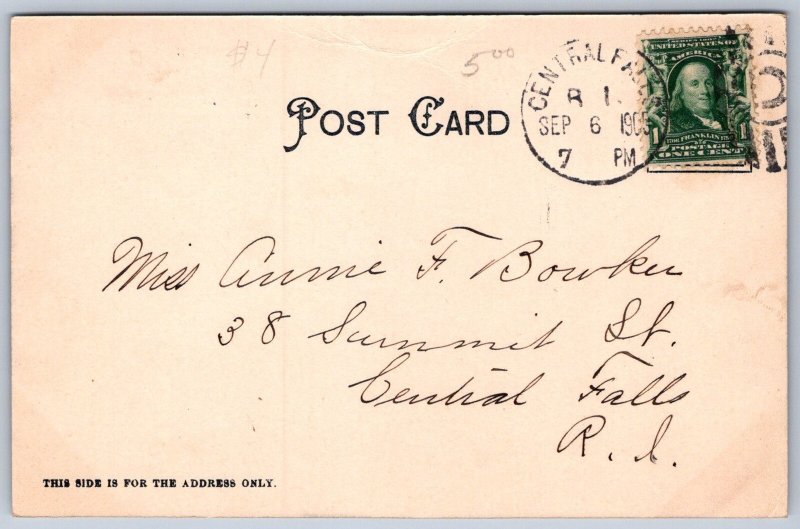 $4
5.00
POST CARD
CENTRAL FALLS
R. I.
SEP 6 1905
7 PM
UNITED STATES OF
AMERICA
FRANKLIN
POSTAGE
1 ONE CENT 1
Miss Annie F. Bowker
38 Summit St.
Central Falls
R. I.
THIS SIDE IS FOR THE ADDRESS ONLY.